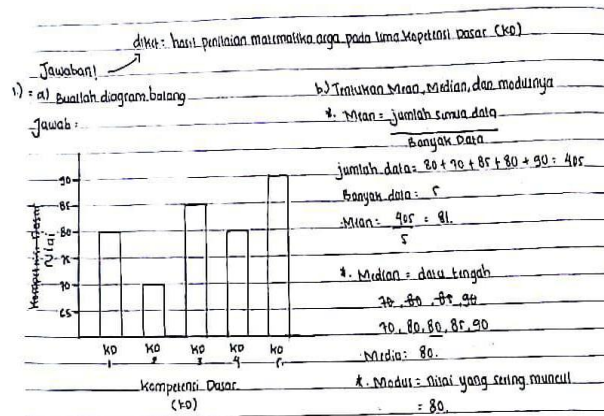 diket: hasil penilaian matematika arga pada lima Kopetensi Dasar (KD)
Jawaban!
1.) = a) Buatlah diagram batang
Jawab :
90
85
80
75
70
65
Kompetensi Dasar
Nilai
KD 1
KD 2
KD 3
KD 4
KD 5
Kompetensi Dasar
(KD)
b.) Tentukan Mean, Median, dan modusnya
*. Mean = jumlah semua data
Banyak Data
jumlah data = 80 + 70 + 85 + 80 + 90 = 405
Banyak data : 5
Mean : 405 = 81.
5
*. Median = data tengah
70, 80, 85, 90
70, 80, 80, 85, 90
Media : 80.
*. Modus = nilai yang sering muncul
= 80.